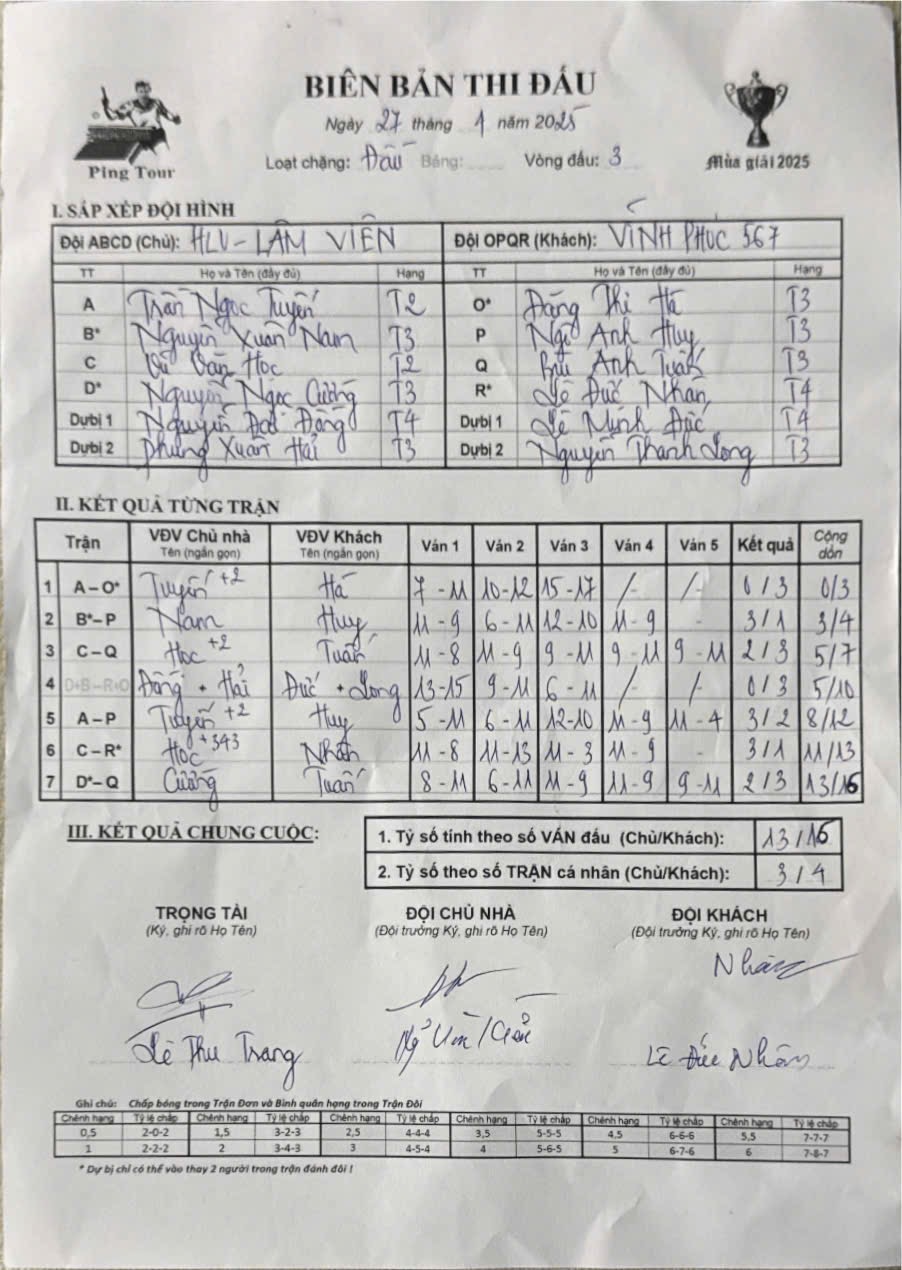 BIÊN BẢN THI ĐẤU
Ngày 27 tháng 1 năm 2025
Ping Tour
Loạt chặng: Đấu Bảng: Vòng đấu: 3
Mùa giải 2025
I. SẮP XẾP ĐỘI HÌNH
Đội ABCD (Chủ): HLV - LÂM VIÊN Đội OPQR (Khách): VĨNH PHÚC 567
TT Họ và Tên (đầy đủ) Hạng TT Họ và Tên (đầy đủ) Hạng
A Trần Ngọc Tuyến T2 O* Đặng Thị Hà T3
B* Nguyễn Xuân Nam T3 P Ngô Anh Huy T3
C Vũ Văn Học T2 Q Bùi Anh Tuấn T3
D* Nguyễn Ngọc Cường T3 R* Lê Đức Nhân T4
Dự bị 1 Nguyễn Đại Đồng T4 Dự bị 1 Lê Minh Đức T4
Dự bị 2 Phùng Xuân Hải T3 Dự bị 2 Nguyễn Thanh Long T3
II. KẾT QUẢ TỪNG TRẬN
Trận VĐV Chủ nhà Tên (ngắn gọn) VĐV Khách Tên (ngắn gọn) Ván 1 Ván 2 Ván 3 Ván 4 Ván 5 Kết quả Cộng dồn
1 A – O* Tuyến +2 Hà 7 - 11 10-12 15-17 /- /- 0 / 3 0/3
2 B*– P Nam Huy 11 - 9 6 - 11 12-10 11 - 9 - 3 / 1 3/4
3 C – Q Học +2 Tuấn 11 - 8 11 - 9 9 - 11 9 - 11 9 - 11 2 / 3 5/7
4 D+B – R+O Đồng + Hải Đức + Long 13-15 9 - 11 6 - 11 /- /- 0 / 3 5/10
5 A – P Tuyến +2 Huy 5 - 11 6 - 11 12-10 11 - 9 11 - 4 3 / 2 8/12
6 C – R* Học +343 Nhân 11 - 8 11-13 11 - 3 11 - 9 - 3 / 1 11/13
7 D*– Q Cường Tuấn 8 - 11 6 - 11 11 - 9 11 - 9 9 - 11 2 / 3 13/16
III. KẾT QUẢ CHUNG CUỘC:
1. Tỷ số tính theo số VÁN đấu (Chủ/Khách): 13 / 16
2. Tỷ số theo số TRẬN cá nhân (Chủ/Khách): 3 / 4
TRỌNG TÀI ĐỘI CHỦ NHÀ ĐỘI KHÁCH
(Ký, ghi rõ Họ Tên) (Đội trưởng Ký, ghi rõ Họ Tên) (Đội trưởng Ký, ghi rõ Họ Tên)
Nhân
Lê Thu Trang Lê Đức Nhân
Ghi chú: Chấp bóng trong Trận Đơn và Bình quân hạng trong Trận Đôi
Chênh hạng Tỷ lệ chấp Chênh hạng Tỷ lệ chấp Chênh hạng Tỷ lệ chấp Chênh hạng Tỷ lệ chấp Chênh hạng Tỷ lệ chấp Chênh hạng Tỷ lệ chấp
0,5 2-0-2 1,5 3-2-3 2,5 4-4-4 3,5 5-5-5 4,5 6-6-6 5,5 7-7-7
1 2-2-2 2 3-4-3 3 4-5-4 4 5-6-5 5 6-7-6 6 7-8-7
* Dự bị chỉ có thể vào thay 2 người trong trận đánh đôi !